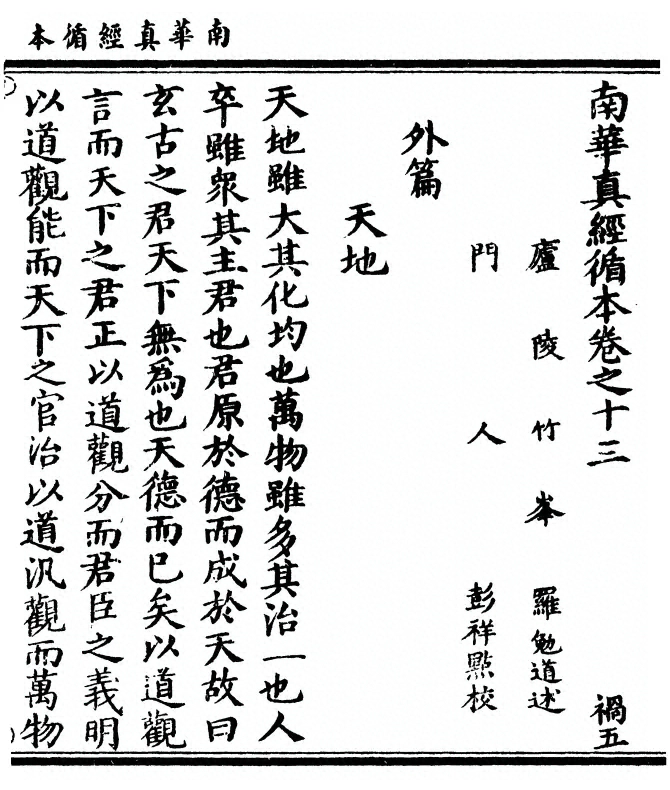 南華真經循本
南華真經循本卷之十三 禍五
廬陵竹峯 羅勉道述
門人 彭祥點校
外篇
天地
天地雖大其化均也萬物雖多其治一也人
卒雖衆其主君也君原於德而成於天故曰
玄古之君天下無爲也天德而已矣以道觀
言而天下之君正以道觀分而君臣之義明
以道觀能而天下之官治以道汎觀而萬物